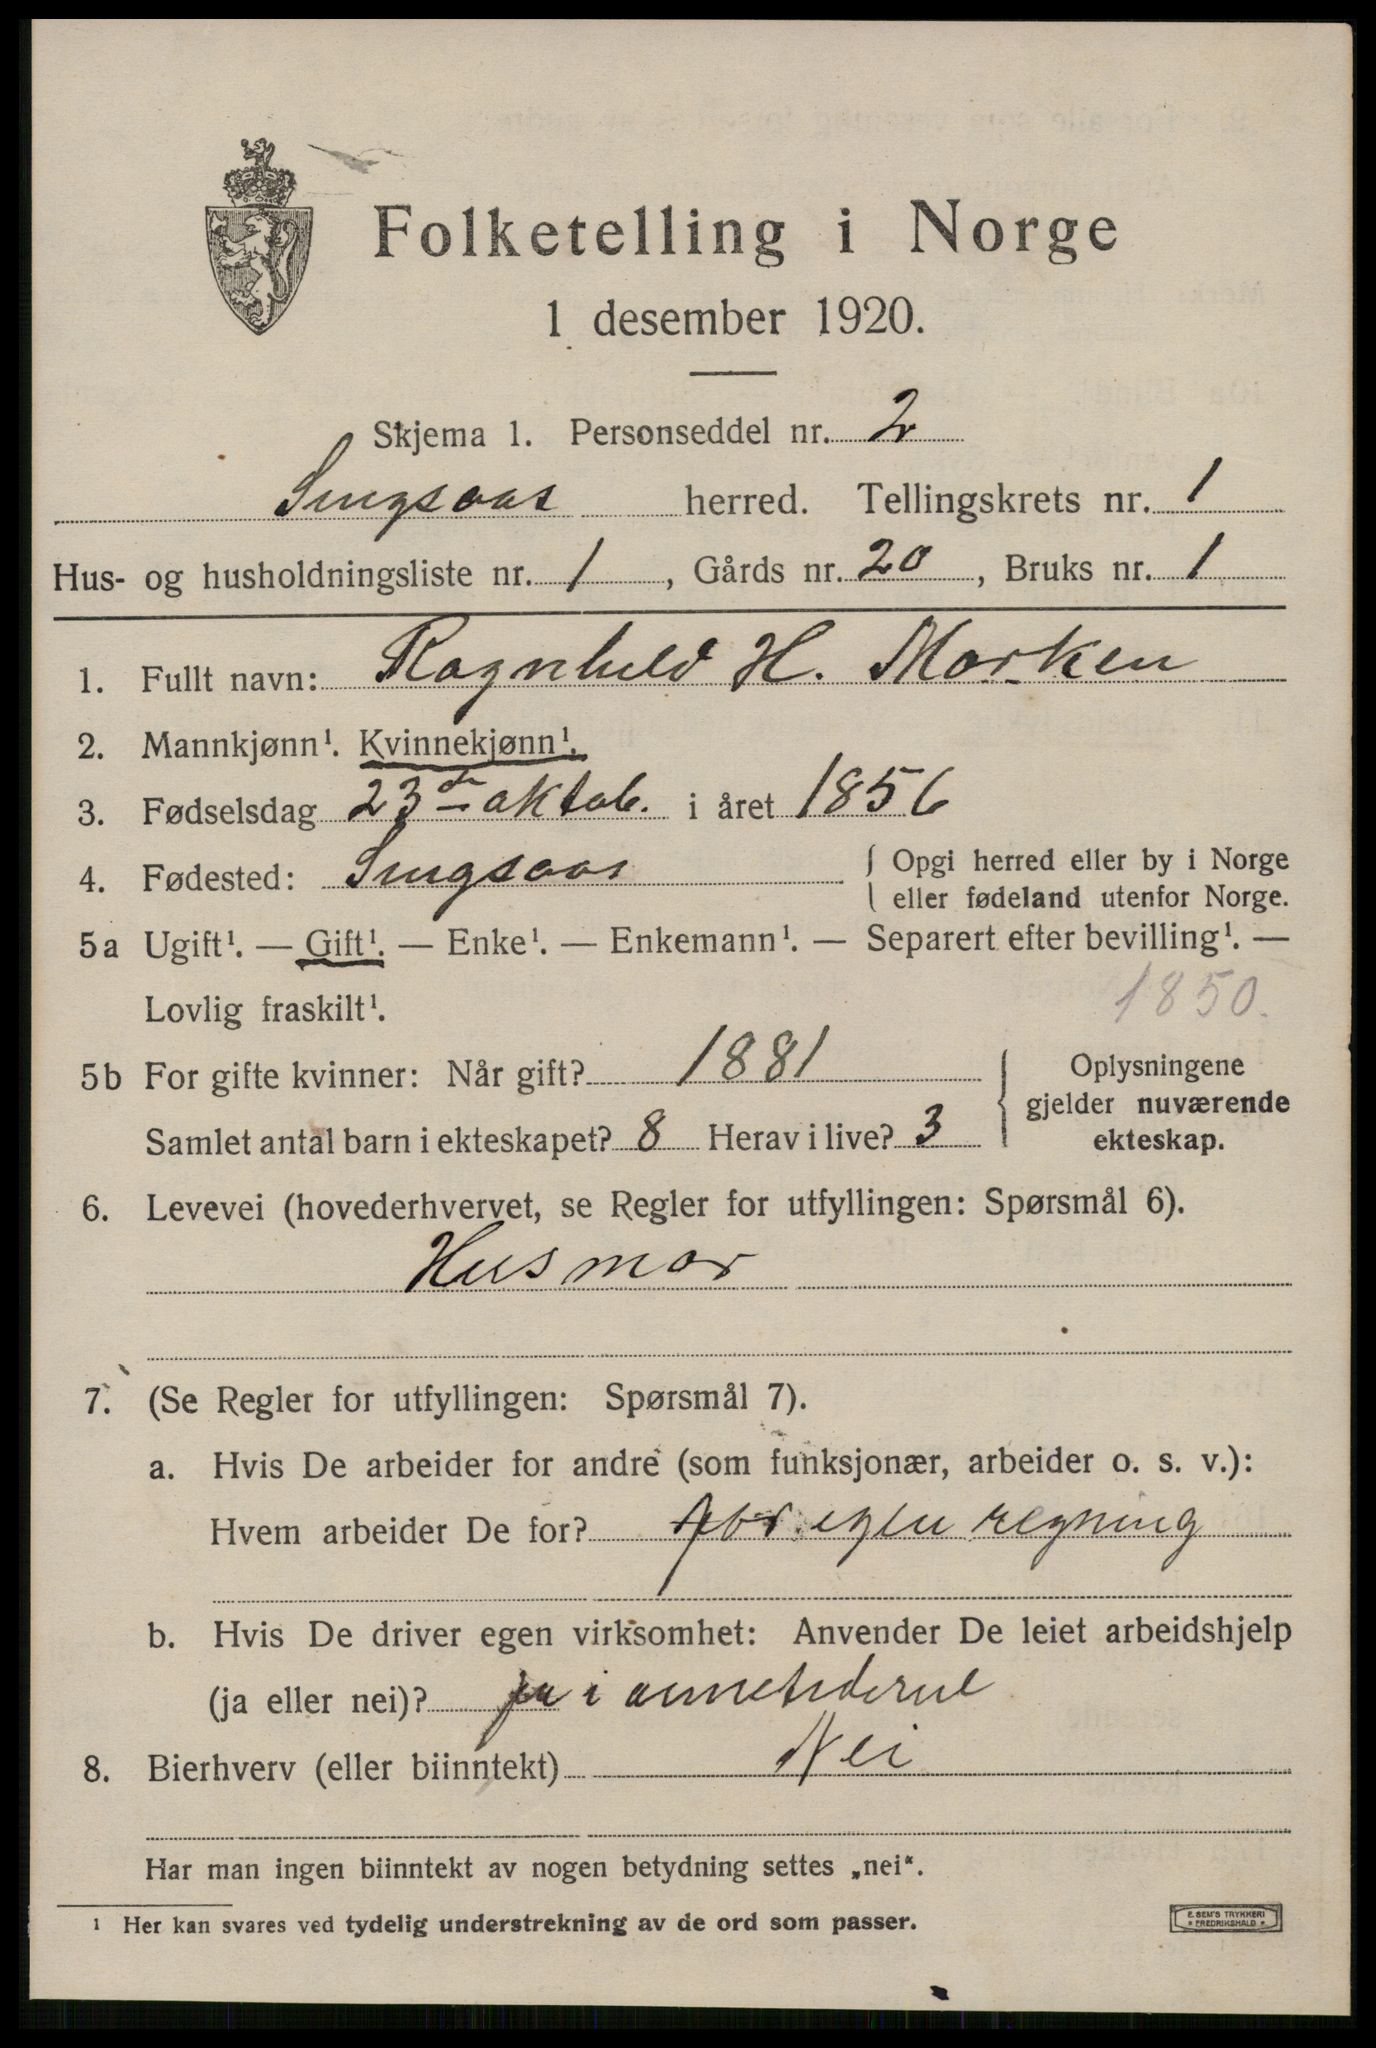 Folketelling i Norge
1 desember 1920.
Skjema 1. Personseddel nr. 2
Singsaas herred. Tellingskrets nr. 1
Hus- og husholdningsliste nr. 1, Gårds nr. 20, Bruks nr. 1
1. Fullt navn: Ragnhild H. Morken
2. Mannkjønn¹. Kvinnekjønn¹.
3. Fødselsdag 23de oktob. i året 1856
4. Fødested: Singsaas { Opgi herred eller by i Norge
eller fødeland utenfor Norge.
5a Ugift¹. — Gift¹. — Enke¹. — Enkemann¹. — Separert efter bevilling¹. —
Lovlig fraskilt¹. 1850.
5b For gifte kvinner: Når gift? 1881
Samlet antal barn i ekteskapet? 8 Herav i live? 3
{ Oplysningene
gjelder nuværende
ekteskap.
6. Levevei (hovederhvervet, se Regler for utfyllingen: Spørsmål 6).
Husmor
7. (Se Regler for utfyllingen: Spørsmål 7).
a. Hvis De arbeider for andre (som funksjonær, arbeider o. s. v.):
Hvem arbeider De for? for egen regning
b. Hvis De driver egen virksomhet: Anvender De leiet arbeidshjelp
(ja eller nei)? ja i
8. Bierhverv (eller biinntekt) Nei
Har man ingen biinntekt av nogen betydning settes „nei".
¹ Her kan svares ved tydelig understrekning av de ord som passer.
E. SEM'S TRYKKERI
* FREDRIKSHALD *